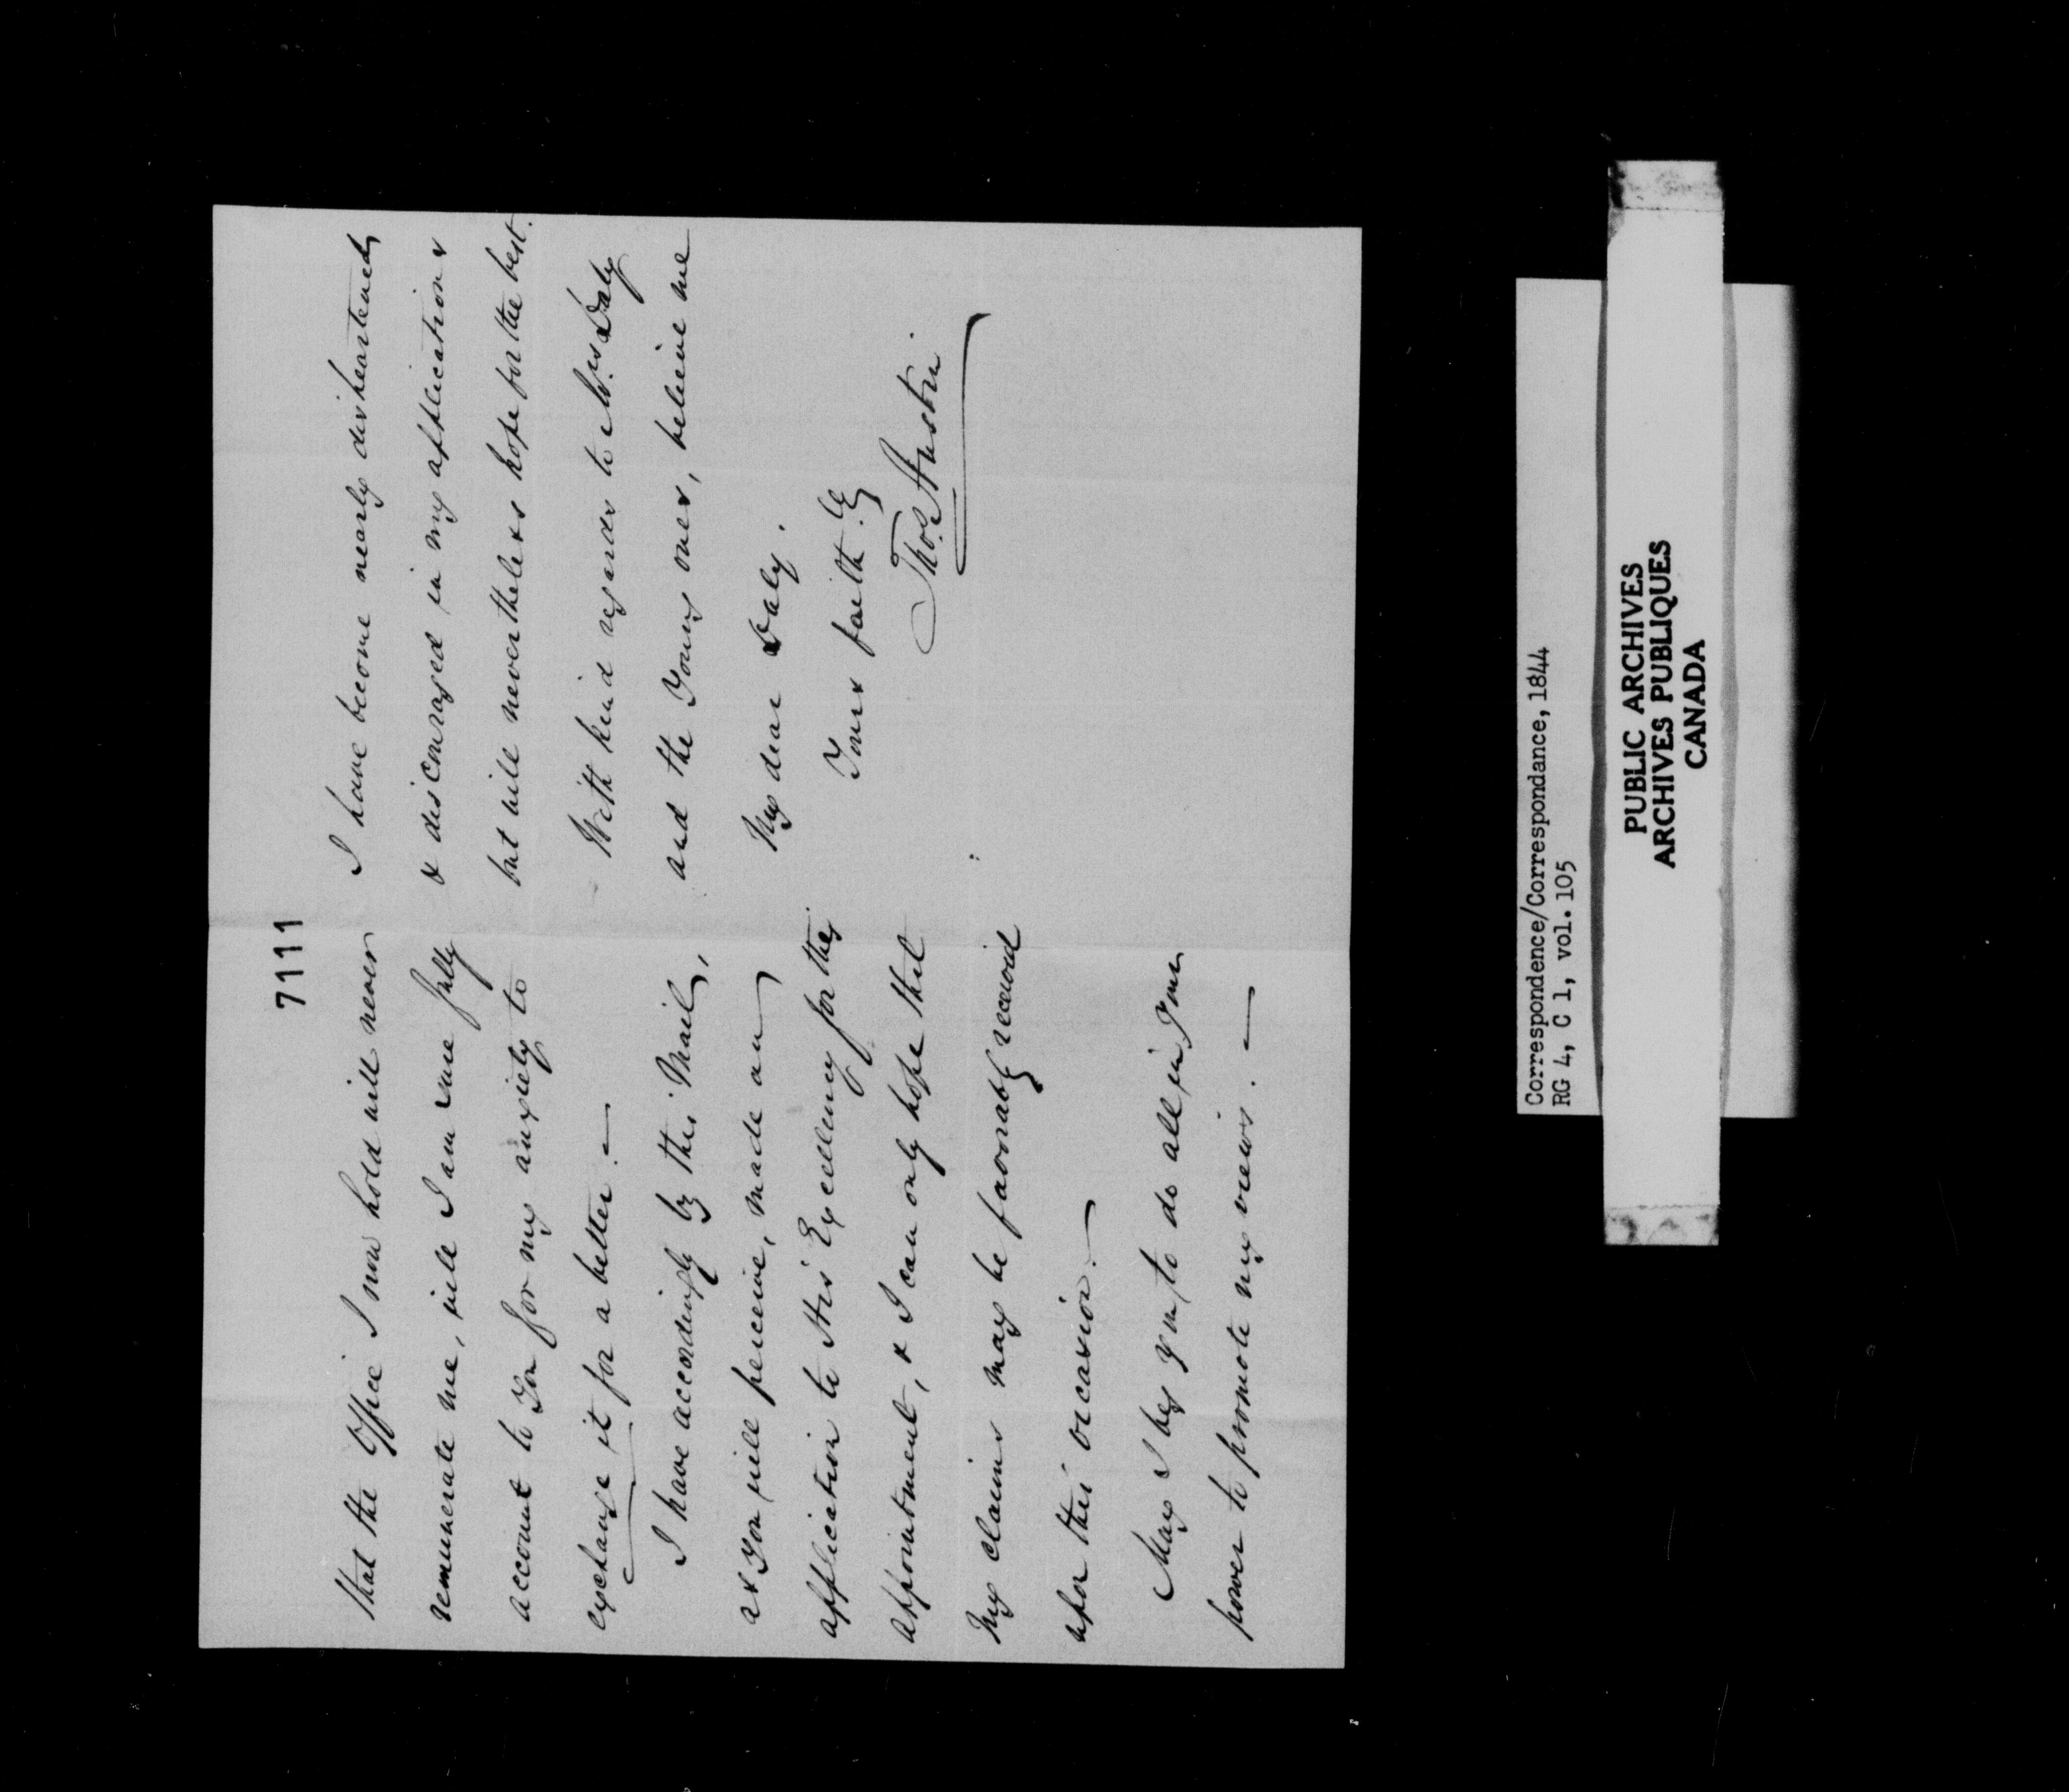 7111
that the Office I now hold will never
remunerate me, will I am sure fully
account to You for my anxiety to
exchange it for a better. —
I have accordingly by this Mail,
as You will perceive, made an
application to His Excellency for the
appointment, & I can only hope that
my claims may be favorably received
upon this occasion. —
May I beg you to do all in Your
power to promote my views. —
I have become nearly disheartened
& discouraged in my application &
but will nevertheless hope for the best.
With kind regards to Mrs Daly
and the Young ones, believe me
My dear Daly.
Yours faithly
Thos. Austin
Correspondence/Correspondance, 1844
RG 4, C 1, vol. 105
PUBLIC ARCHIVES
ARCHIVES PUBLIQUES
CANADA